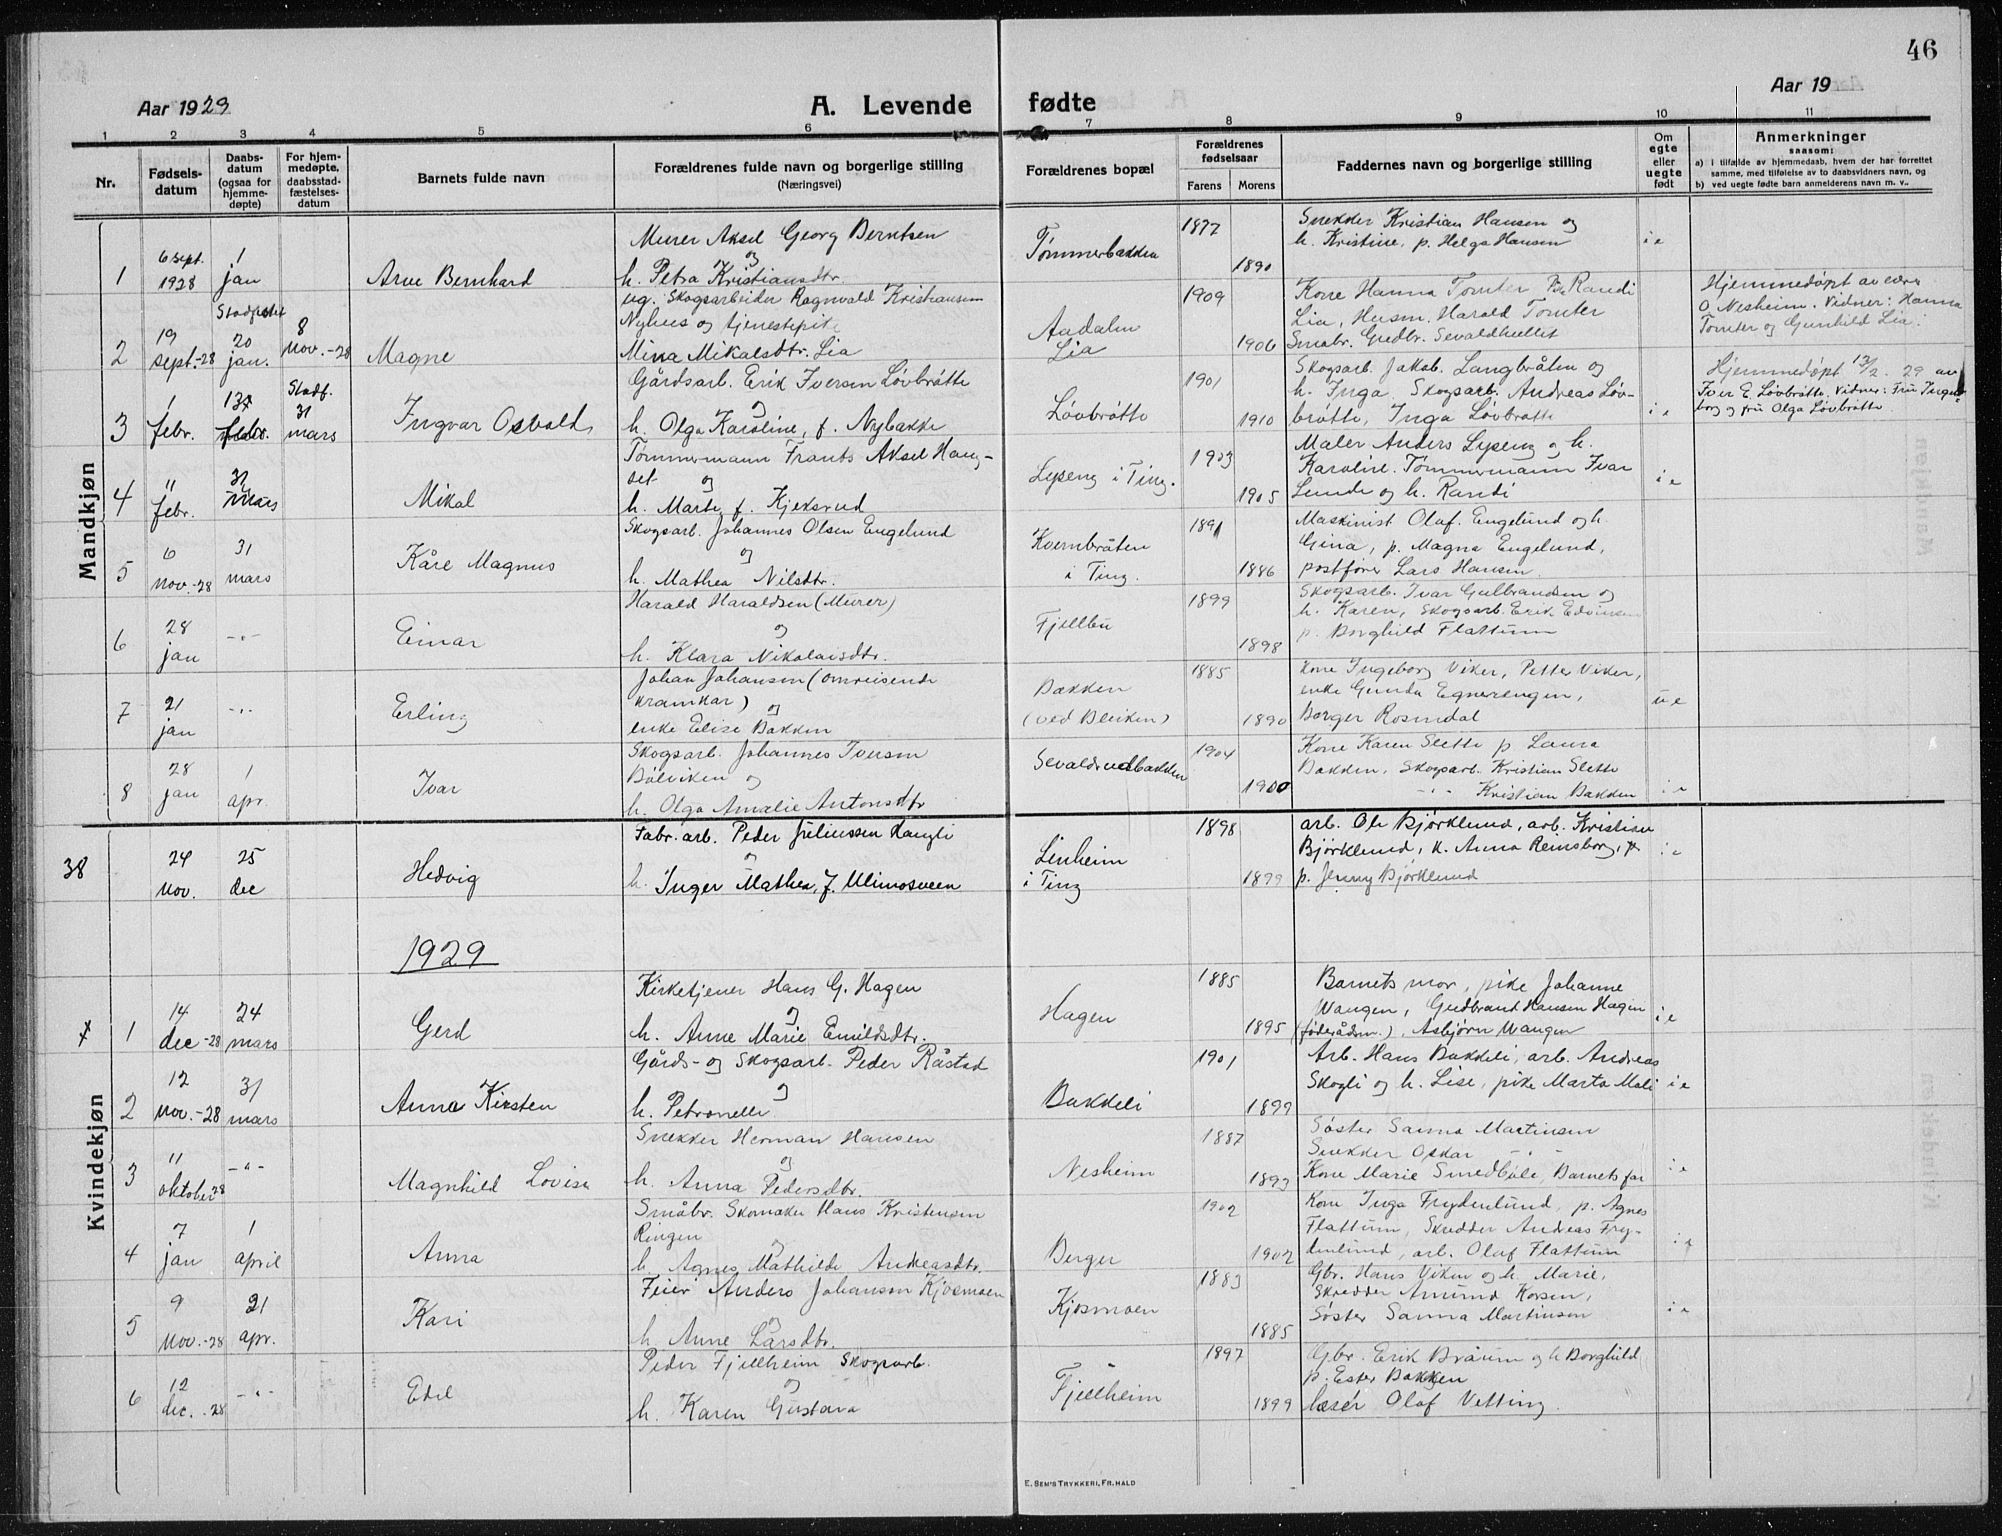 46
Aar 1929
A. Levende fødte
Aar 19
1 2 3 4 5 6 7 8 9 10 11
Nr.
Fødsels-
datum
Daabs-
datum
(ogsaa for
hjemme-
døpte)
For hjem-
medøpte,
daabsstad-
fæstelses-
datum
Barnets fulde navn
Forældrenes fulde navn og borgerlige stilling
(Næringsvei)
Forældrenes bopæl
Forældrenes
fødselsaar
Farens Morens
Faddernes navn og borgerlige stilling
Om
egte
eller
uegte
født
Anmerkninger
saasom:
a) i tilfælde av hjemmedaab, hvem der har forrettet
samme, med tilføielse av to daabsvidners navn, og
b) ved uegte fødte barn anmelderens navn m. v..
Mandkjøn
1
6 sept.
1928
1
jan
Arne Bernhard
Murer Aksel Georg Berntsen
og
h. Petra Kristiansdtr.
Tømmerbakken
1877
1890
Snekker Kristian Hansen og
h. Kristine, p. Helga Hansen
i e
2
19
sept.-28
Stadfestet
20
jan.
8
nov.-28
Magne
ug. Skogsarbeider Ragnvald Kristiansen
Nyhus og tjenestepike
Mina Mikalsdtr. Lia
Aadalen
Lia
1909
1906
Kone Hanna Tomter Randi
Lia, Husm. Harald Tomter
Smabr. Gudbr. Sevaldhullet
Hjemmedøpt av
O. Nesheim. Vidner: Hanna
Tomter og Gunhild Lia.
3
1
febr.
13
febr.
Stadf.
31
mars
Ingvar Osvald
Gårdsarb. Erik Iversen Løvbråtte
og
h. Olga Karoline, f. Nybakke
Løvbråtte
1901
1910
Skogsarb. Jakob Langbråten og
h. Inga, Skogsarb. Andreas Løv-
bråtte, Inga Løvbråtte
i e
Hjemmedøpt 13/2. 29 av
Iver E. Løvbråtte. Vidner: Fru Ingeb-
borg og fru Olga Løvbråtte.
4
11
febr.
31
mars
Mikal
Tømmermann Frants Aksel Haug-
set og
h. Marte, f. Kjeksrud
Lyseng i Ting.
1903
1905
Maler Anders Lyseng og h.
Karoline. Tømmermann Ivar
Lunde og h. Randi
i e
5
6
nov.-28
31
mars
Kåre Magnus
Skogsarb. Johannes Olsen Engelund
og
h. Mathea Nilsdtr.
Kvernbråten
i Ting.
1891
1886
Maskinist Olaf. Engelund og h.
Gina, p. Magna Engelund,
postfører Lars Hansen
6
28
jan
-"-
Einar
Harald Haraldsen (Murer)
og
h. Klara Nikolaisdtr.
Fjellbu
1899
1898
Skogsarb. Ivar Gulbrandsen og
h. Karen, Skogsarb. Erik Edvinsen
p. Borghild Flattum
7
21
jan
-"-
Erling
Johan Johansen (omreisende
kramkar)
og
enke Elise Bakken
Bakken
(ved Bleiken)
1885
1890
Kone Ingeborg Viker, Petter Viker,
enke Gunda Egnerengen,
Borger Rosendal
u e
8
28
jan
1
apr.
Ivar
Skogsarb. Johannes Iversen
Bølviken og
h. Olga Amalie Antonsdtr
Sevaldrudbakken
1904
1900
Kone Karen Slette p. Laura
Bakken, Skogsarb. Kristian Slette
-"- Kristian Bakken
i e
38
24
nov.
25
dec
Hedvig
Fabr. arb. Peder Juliussen Haugli
og
h. Inger Mathea, f. Ulimosveen
Linheim
i Ting
1898
1899
arb. Ole Bjørklund, arb. Kristian
Bjørklund, k. Anna Reinsborg, p.
p. Jenny Bjørklund
i e
1929
Kvindekjøn
1
14
dec-28
24
mars
Gerd
Kirketjener Hans G. Hagen
og
h. Anne Marie Emildsdtr.
Hagen
1885
1895
Barnets mor, pike Johanne
Wangen, Gudbrand Hansen Hagen
(føderådsm.), Asbjørn Wangen
i e
2
12
nov.-28
31
mars
Anna Kirsten
Gårds- og Skogsarb. Peder Råstad
og
h. Petronelle
Bakkeli
1901
1899
Arb. Hans Bakkeli, arb. Andreas
Skogli og h. Lise, pike Marta Moli
i e
3
11
oktober 28
-"-
Magnhild Lovise
Snekker Herman Hansen
og
h. Anna Pedersdtr.
Nesheim
1887
1893
Søster Sanna Martinsen
Snekker Oskar -"-
Kone Marie Smedbøle, Barnets far
i e
4
7
jan
1
april
Anna
Småbr. Skomaker Hans Kristensen
Ringen
og
h. Agnes Mathilde Andreasdtr.
Berger
1902
1902
Kone Inga Frydenlund, p. Agnes
Flattum, Skredder Andreas Fry-
denlund, arb. Olaf Flattum
i e
5
9
nov.-28
21
apr.
Kari
Feier Anders Johansen Kjosmoen
og
h. Anne Larsdtr.
Kjosmoen
1883
1885
Gbr. Hans Viken og h. Marie,
Skredder Amund Korsen,
Søster Sanna Martinsen
i e
6
12
dec.-28
-"-
Edel
Peder Fjellheim Skogsarb.
og
h. Karen Gustava
Fjellheim
1897
1899
Gbr. Erik Bråum og h Borghild
p. Ester Bakken
læser Olaf Vetting.
E. SEM'S TRYKKERI, FR.HALD